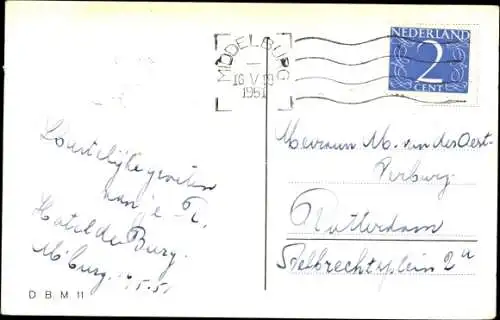 MIDDELBURG
16 V 19
1951
NEDERLAND
2
CENT
Hartelijke groeten
van
Hotel de Burg.
M'burg. 5.51
Mevrouw M. van der Oest-
Verburg
Rotterdam
Stelbrechtsplein 2a
D B. M. 11